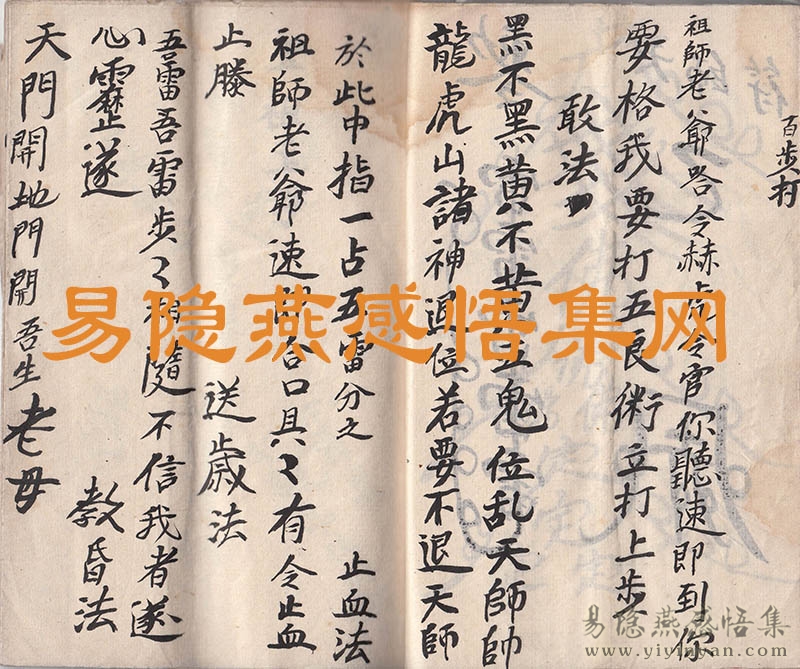 百步打
祖師老爺 令赫 令官你聽速即到你
要格我要打五良術立打上步
敢法
黑不黑黄不黄 立鬼位乱天師帥
龍虎山諸神退位若要不退天師
於此中指一占五雷分之
止血法
祖師老爺速 合口具〻有令止血
止 送歲法
五雷吾雷步〻相隨不信我者遂
心 遂
教昏法
天門開地門開吾生老母
易隐燕感悟集网
易隐燕感悟集
www.yiyinyan.com